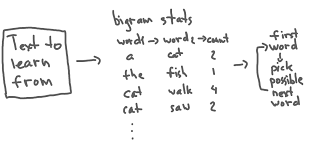 Text to
learn
from
bigram stats
word1 → word2 → count
a cat 2
the fish 1
cat walk 4
cat saw 2
⋮
first
word
↓
pick
possible
next
word